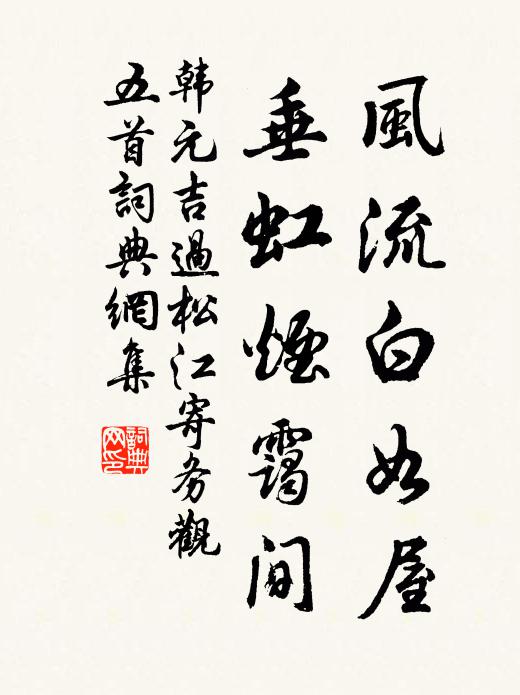 風流白如屋
垂虹煙靄間
韩元吉過松江寄务觀
五首詞典網集
詞典网印